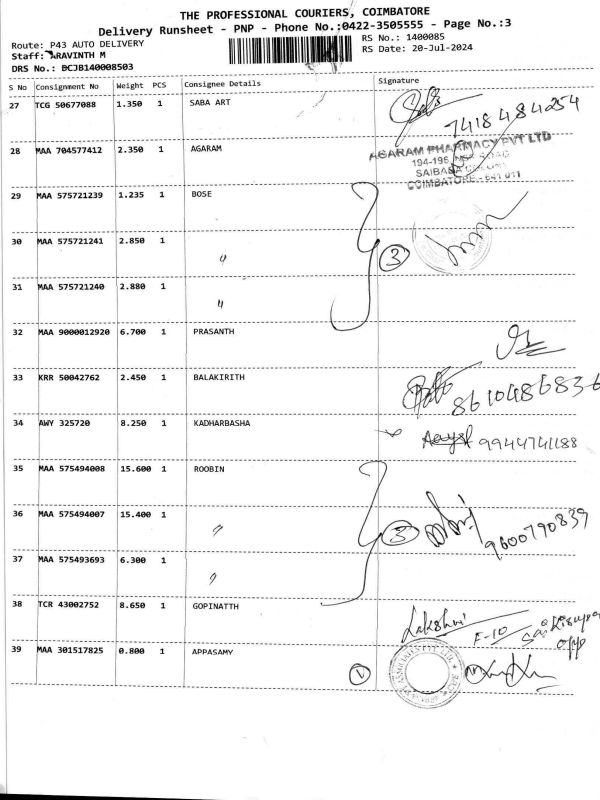 THE PROFESSIONAL COURIERS, COIMBATORE
Delivery Runsheet - PNP - Phone No.:0422-3505555 - Page No.:3
Route: P43 AUTO DELIVERY
RS No.: 1400085
Staff: ARAVINTH M
RS Date: 20-Jul-2024
DRS No.: BCJB140008503
S No Consignment No Weight PCS Consignee Details Signature
27 TCG 50677088 1.350 1 SABA ART
7418484254
28 MAA 704577412 2.350 1 AGARAM
AGARAM PHARMACY PVT LTD
194-196,
SAIBABA COLONY
COIMBATORE - 641 011
29 MAA 575721239 1.235 1 BOSE
30 MAA 575721241 2.850 1 "
3
31 MAA 575721240 2.880 1 "
32 MAA 9000012920 6.700 1 PRASANTH
33 KRR 50042762 2.450 1 BALAKIRITH
8610486836
34 AWY 325720 8.250 1 KADHARBASHA
9944741188
35 MAA 575494008 15.600 1 ROOBIN
36 MAA 575494007 15.400 1 "
3
9600790839
37 MAA 575493693 6.300 1 "
38 TCR 43002752 8.650 1 GOPINATTH
Lakshmi F-10
opp
39 MAA 301517825 0.800 1 APPASAMY